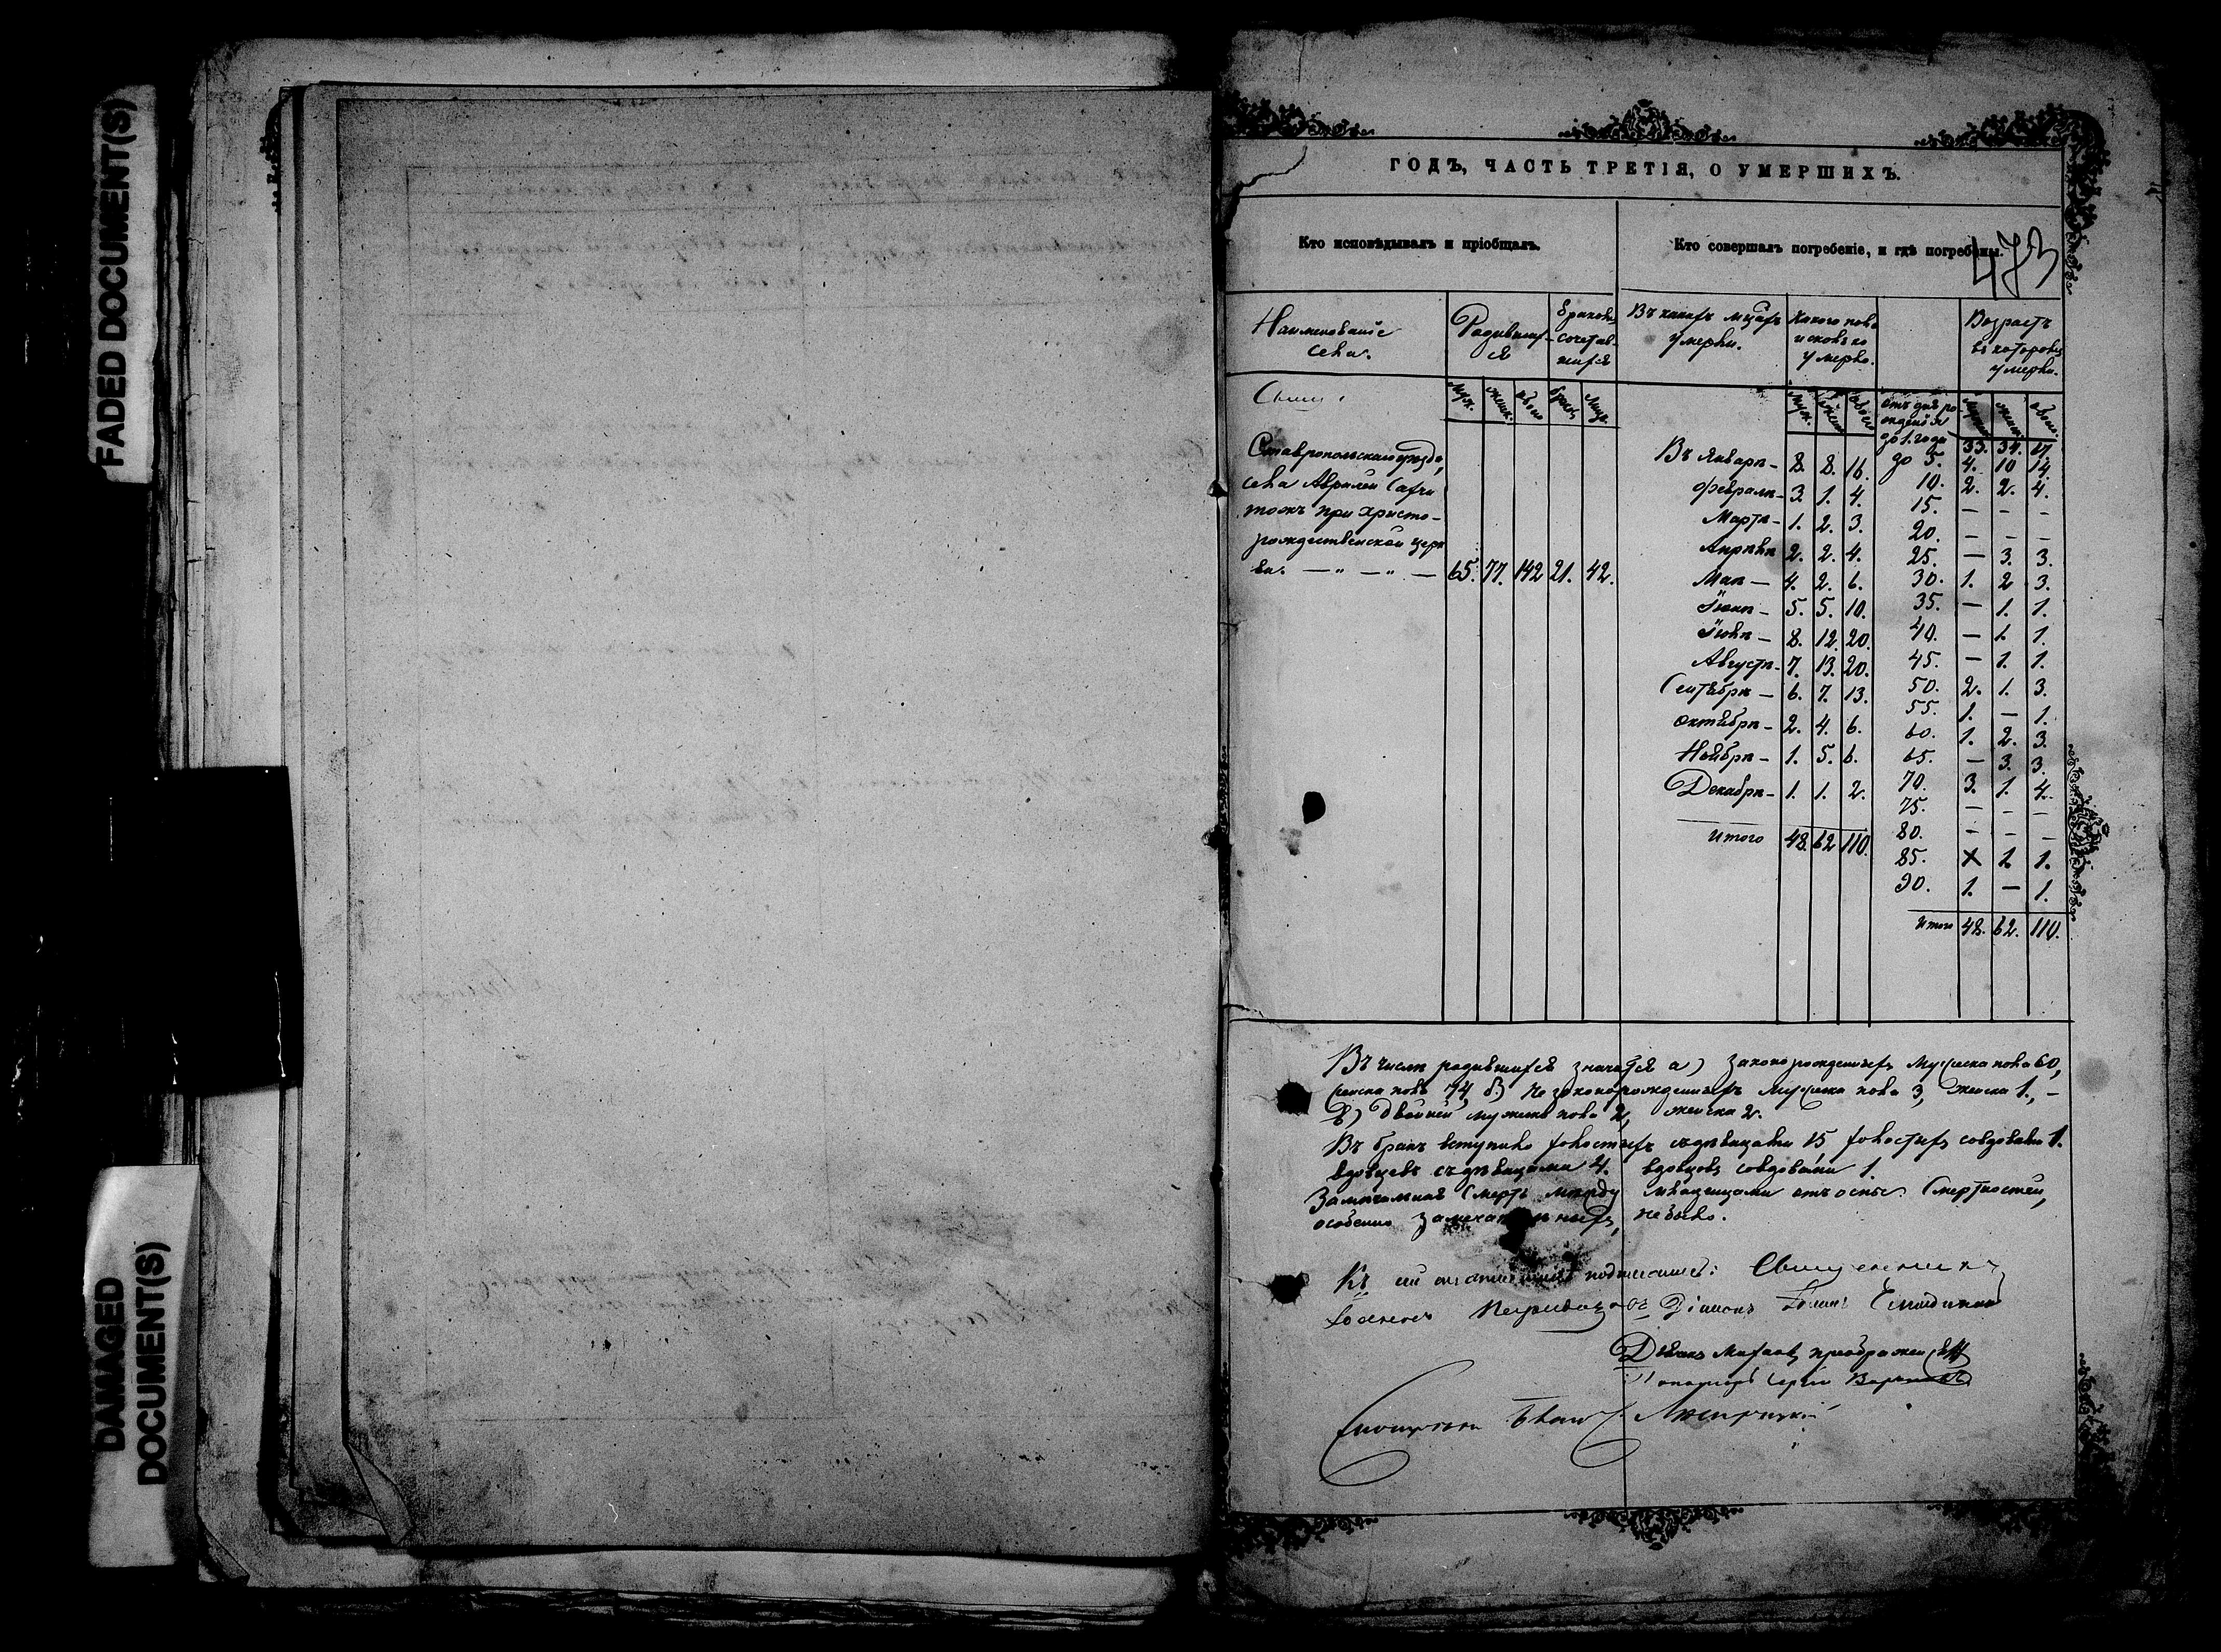 FADED DOCUMENT(S)
DAMAGED
DOCUMENT(S)
ГОДЪ, ЧАСТЬ ТРЕТІЯ, О УМЕРШИХЪ.
Кто исповѣдывалъ и пріобщалъ.
Кто совершалъ погребеніе, и гдѣ погребены.
473
Наименованіе
села.
Родивших-
ся
Бракомъ
сочетав-
шихся
умерли.
Какого пола
и сколько
умерло.
Возрастъ
въ которомъ
умерли.
Муж. Женск. обоего браковъ лицъ
муж. женск. обоего
отъ дня ро-
жденія
до 1. года 33. 34. 67.
Ставропольскаго уѣзда,
села
тожъ при Христо-
рождественской церк
ви. — „ — „ — 65. 77. 142 21. 42.
Въ Январѣ — 8. 8. 16.
Февралѣ — 3. 1. 4.
Мартѣ — 1. 2. 3.
Апрѣлѣ 2. 2. 4.
Маѣ — 4. 2. 6.
Іюнѣ — 5. 5. 10.
Іюлѣ — 8. 12. 20.
Августѣ — 7. 13. 20.
Сентябрѣ — 6. 7. 13.
Октябрѣ — 2. 4. 6.
Ноябрѣ — 1. 5. 6.
Декабрѣ — 1. 1. 2.
Итого 48. 62 110.
до 5. 4. 10 14.
10. 2. 2. 4.
15. — — —
20. — — —
25. — 3. 3.
30. 1. 2 3.
35. — 1. 1.
40. — 1. 1.
45. — 1. 1.
50. 2. 1. 3.
55. 1. — 1.
60. 1. 2. 3.
65. — 3. 3.
70. 3. 1. 4.
75. — — —
80. — — —
85. X 1. 1.
90. 1. — 1.
Итого 48. 62. 110.
Въ числѣ родившихся значатся а) Законорожденныхъ Мужеска пола 60,
женска полъ 74, б) Незаконорожденныхъ мужеска пола 3, женска 1., —
в) Двойней мужеска пола 2, женска 2.
Въ бракъ вступило холостыхъ съ дѣвицами 15 холостыхъ со вдовами 1.
вдовцевъ съ дѣвицами 4. вдовцовъ со вдовами 1.
смерть между младенцами отъ оспы. Смертностей,
особенно замѣчательныхъ, не было.
Къ подписались: Священникъ
Діаконъ
Дьякъ Михаилъ Преображенскій
Сергѣй